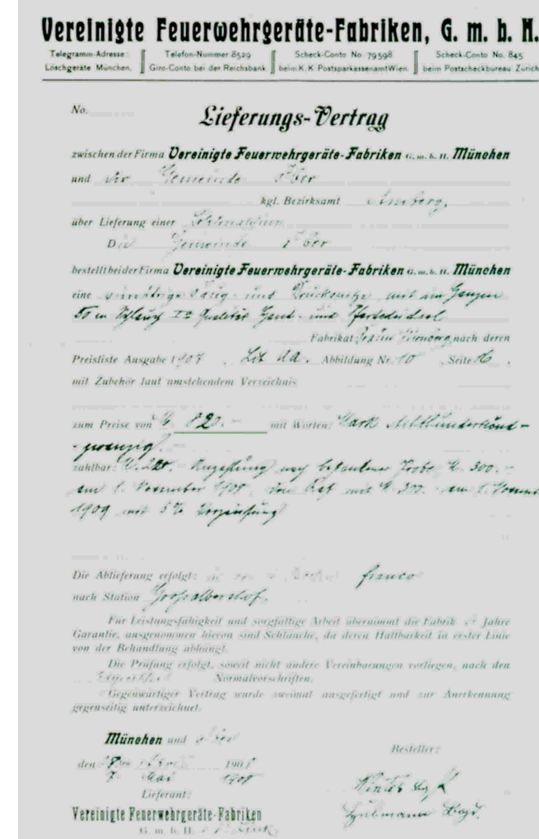 Vereinigte Feuerwehrgeräte-Fabriken, G. m. b. H.
Telegramm-Adresse: Löschgeräte München.
Telefon-Nummer 8529 Giro-Conto bei der Reichsbank
Scheck-Conto No. 79598 beim K. K. Postsparkassenamt Wien.
Scheck-Conto No. 845 beim Postscheckbureau Zürich
No.
Lieferungs-Vertrag
zwischen der Firma Vereinigte Feuerwehrgeräte-Fabriken G. m. b. H. München
und der Gemeinde
kgl. Bezirksamt Amberg.
über Lieferung einer
Die Gemeinde
bestellt bei der Firma Vereinigte Feuerwehrgeräte-Fabriken G. m. b. H. München
eine vierrädrige Saug- und Druckspritze mit im Ganzen
50 m Schlauch Ia Qualität Hand- und Pferdedeichsel
Fabrikat nach deren
Preisliste Ausgabe 1907, Lit Aa. Abbildung Nr. 10 Seite 16,
mit Zubehör laut umstehendem Verzeichnis
zum Preise von M. 820.- mit Worten: Mark Achthundertund-
zwanzig
zahlbar: M. 220. Anzahlung nach Probe M. 300.-
am 1. November 1908 den Rest mit M. 300.- am 1. Novemb
1909 mit 5% Verzinsung
Die Ablieferung erfolgt: franco
nach Station
Für Leistungsfähigkeit und sorgfältige Arbeit übernimmt die Fabrik Jahre
Garantie, ausgenommen hievon sind Schläuche, da deren Haltbarkeit in erster Linie
von der Behandlung abhängt.
Die Prüfung erfolgt, soweit nicht andere Vereinbarungen vorliegen, nach den
Normalvorschriften.
Gegenwärtiger Vertrag wurde zweimal ausgefertigt und zur Anerkennung
gegenseitig unterzeichnet.
München und
Besteller:
den 1908
7. Mai 1908
Lieferant:
Vereinigte Feuerwehrgeräte-Fabriken
G. m. b. H.